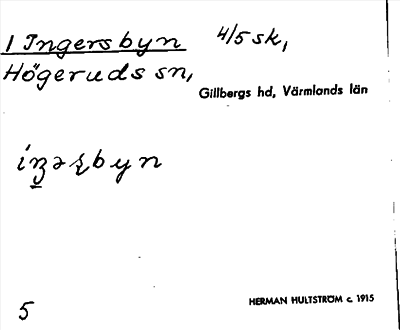 1 Ingersbyn 4/5 sk,
Högeruds sn,
Gillbergs hd, Värmlands län
5
HERMAN HULTSTRÖM c. 1915